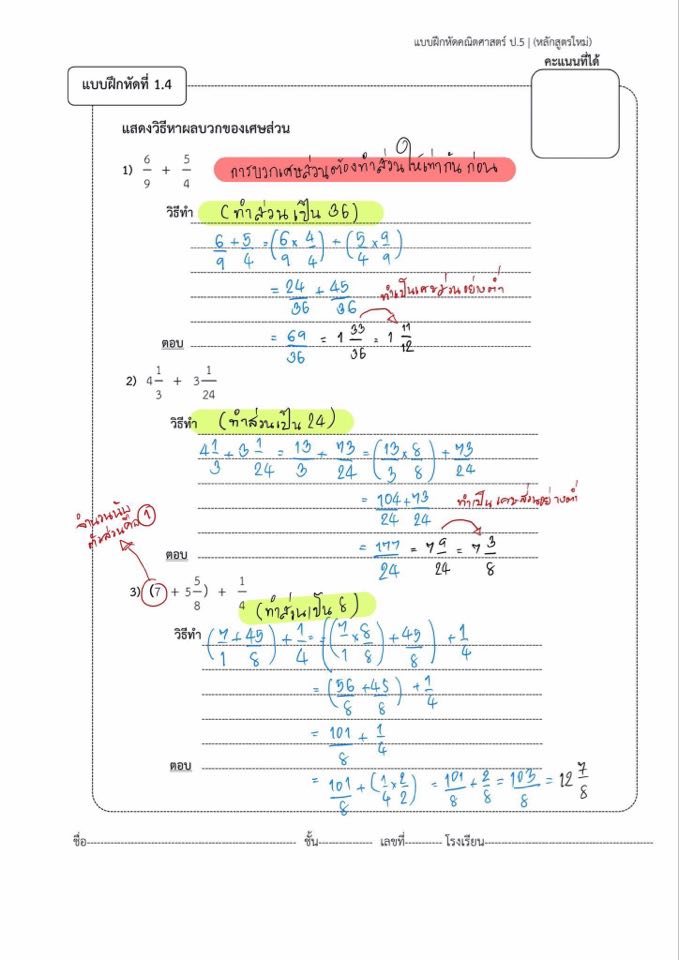 แบบฝึกหัดคณิตศาสตร์ ป.5 | (หลักสูตรใหม่)
คะแนนที่ได้
แบบฝึกหัดที่ 1.4
แสดงวิธีหาผลบวกของเศษส่วน
1) 6/9 + 5/4
การบวกเศษส่วนต้องทำส่วนให้เท่ากันก่อน
วิธีทำ (ทำส่วนเป็น 36)
6/9 + 5/4 = (6/9 × 4/4) + (5/4 × 9/9)
= 24/36 + 45/36
ทำเป็นเศษส่วนอย่างต่ำ
ตอบ = 69/36 = 1 33/36 = 1 11/12
2) 4 1/3 + 3 1/24
วิธีทำ (ทำส่วนเป็น 24)
4 1/3 + 3 1/24 = 13/3 + 73/24 = (13/3 × 8/8) + 73/24
= 104/24 + 73/24
ทำเป็นเศษส่วนอย่างต่ำ
ตอบ = 177/24 = 7 9/24 = 7 3/8
จำนวนนับ
ตัวส่วนคือ 1
3) (7 + 5 5/8) + 1/4
(ทำส่วนเป็น 8)
วิธีทำ (7/1 + 45/8) + 1/4 = ((7/1 × 8/8) + 45/8) + 1/4
= (56/8 + 45/8) + 1/4
= 101/8 + 1/4
ตอบ
= 101/8 + (1/4 × 2/2) = 101/8 + 2/8 = 103/8 = 12 7/8
ชื่อ ชั้น เลขที่ โรงเรียน